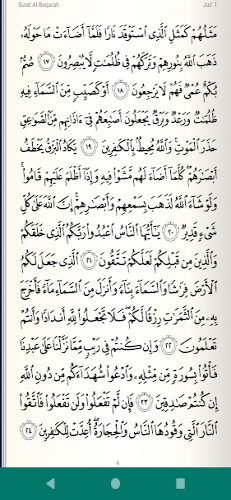 Surat Al-Baqarah Juz' 1
مَثَلُهُمْ كَمَثَلِ ٱلَّذِى ٱسْتَوْقَدَ نَارًا فَلَمَّآ أَضَآءَتْ مَا حَوْلَهُۥ
ذَهَبَ ٱللَّهُ بِنُورِهِمْ وَتَرَكَهُمْ فِى ظُلُمَٰتٍ لَّا يُبْصِرُونَ ١٧ صُمٌّۢ
بُكْمٌ عُمْىٌ فَهُمْ لَا يَرْجِعُونَ ١٨ أَوْ كَصَيِّبٍ مِّنَ ٱلسَّمَآءِ فِيهِ
ظُلُمَٰتٌ وَرَعْدٌ وَبَرْقٌ يَجْعَلُونَ أَصَٰبِعَهُمْ فِىٓ ءَاذَانِهِم مِّنَ ٱلصَّوَٰعِقِ
حَذَرَ ٱلْمَوْتِ وَٱللَّهُ مُحِيطٌۢ بِٱلْكَٰفِرِينَ ١٩ يَكَادُ ٱلْبَرْقُ يَخْطَفُ
أَبْصَٰرَهُمْ كُلَّمَآ أَضَآءَ لَهُم مَّشَوْا۟ فِيهِ وَإِذَآ أَظْلَمَ عَلَيْهِمْ قَامُوا۟
وَلَوْ شَآءَ ٱللَّهُ لَذَهَبَ بِسَمْعِهِمْ وَأَبْصَٰرِهِمْ إِنَّ ٱللَّهَ عَلَىٰ كُلِّ
شَىْءٍ قَدِيرٌ ٢٠ يَٰٓأَيُّهَا ٱلنَّاسُ ٱعْبُدُوا۟ رَبَّكُمُ ٱلَّذِى خَلَقَكُمْ
وَٱلَّذِينَ مِن قَبْلِكُمْ لَعَلَّكُمْ تَتَّقُونَ ٢١ ٱلَّذِى جَعَلَ لَكُمُ
ٱلْأَرْضَ فِرَٰشًا وَٱلسَّمَآءَ بِنَآءً وَأَنزَلَ مِنَ ٱلسَّمَآءِ مَآءً فَأَخْرَجَ
بِهِۦ مِنَ ٱلثَّمَرَٰتِ رِزْقًا لَّكُمْ فَلَا تَجْعَلُوا۟ لِلَّهِ أَندَادًا وَأَنتُمْ
تَعْلَمُونَ ٢٢ وَإِن كُنتُمْ فِى رَيْبٍ مِّمَّا نَزَّلْنَا عَلَىٰ عَبْدِنَا
فَأْتُوا۟ بِسُورَةٍ مِّن مِّثْلِهِۦ وَٱدْعُوا۟ شُهَدَآءَكُم مِّن دُونِ ٱللَّهِ
إِن كُنتُمْ صَٰدِقِينَ ٢٣ فَإِن لَّمْ تَفْعَلُوا۟ وَلَن تَفْعَلُوا۟ فَٱتَّقُوا۟
ٱلنَّارَ ٱلَّتِى وَقُودُهَا ٱلنَّاسُ وَٱلْحِجَارَةُ أُعِدَّتْ لِلْكَٰفِرِينَ ٢٤
4